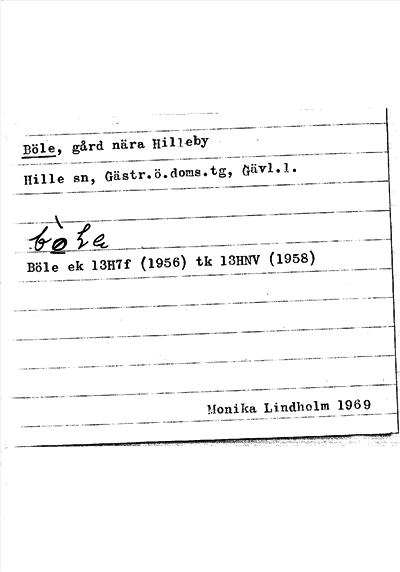 Böle, gård nära Hilleby
Hille sn, Gästr.ö.doms.tg, Gävl.l.
Böle ek 13H7f (1956) tk 13HNV (1958)
Monika Lindholm 1969